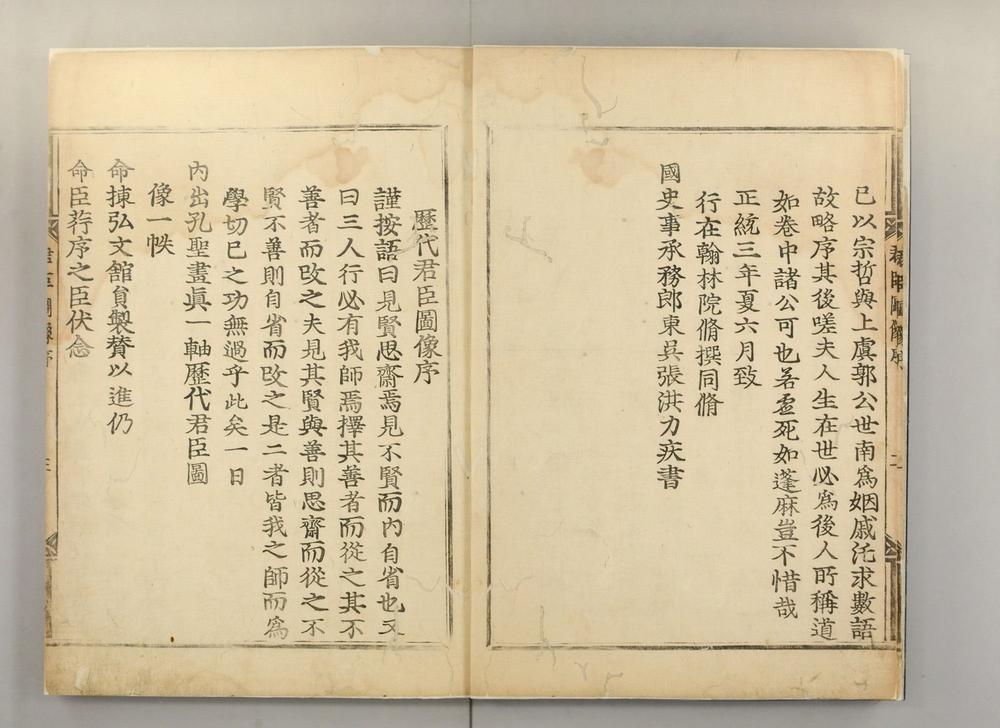 已以宗哲與上虞郭公世南爲姻戚託求數語
故略序其後嗟夫人生在世必爲後人所稱道
如卷中諸公可也若虛死如蓬麻豈不惜哉
正統三年夏六月致
行在翰林院脩撰同脩
國史事承務郎東吳張洪力疾書
歷代君臣圖像序
謹按語曰見賢思齋焉見不賢而內自省也又
曰三人行必有我師焉擇其善者而從之其不
善者而改之夫見其賢與善則思齋而從之不
賢不善則自省而改之是二者皆我之師而爲
學切已之功無過乎此矣一日
內出孔聖畫眞一軸歷代君臣圖
像一帙
命揀弘文館員製賛以進仍
命臣荇序之臣伏念